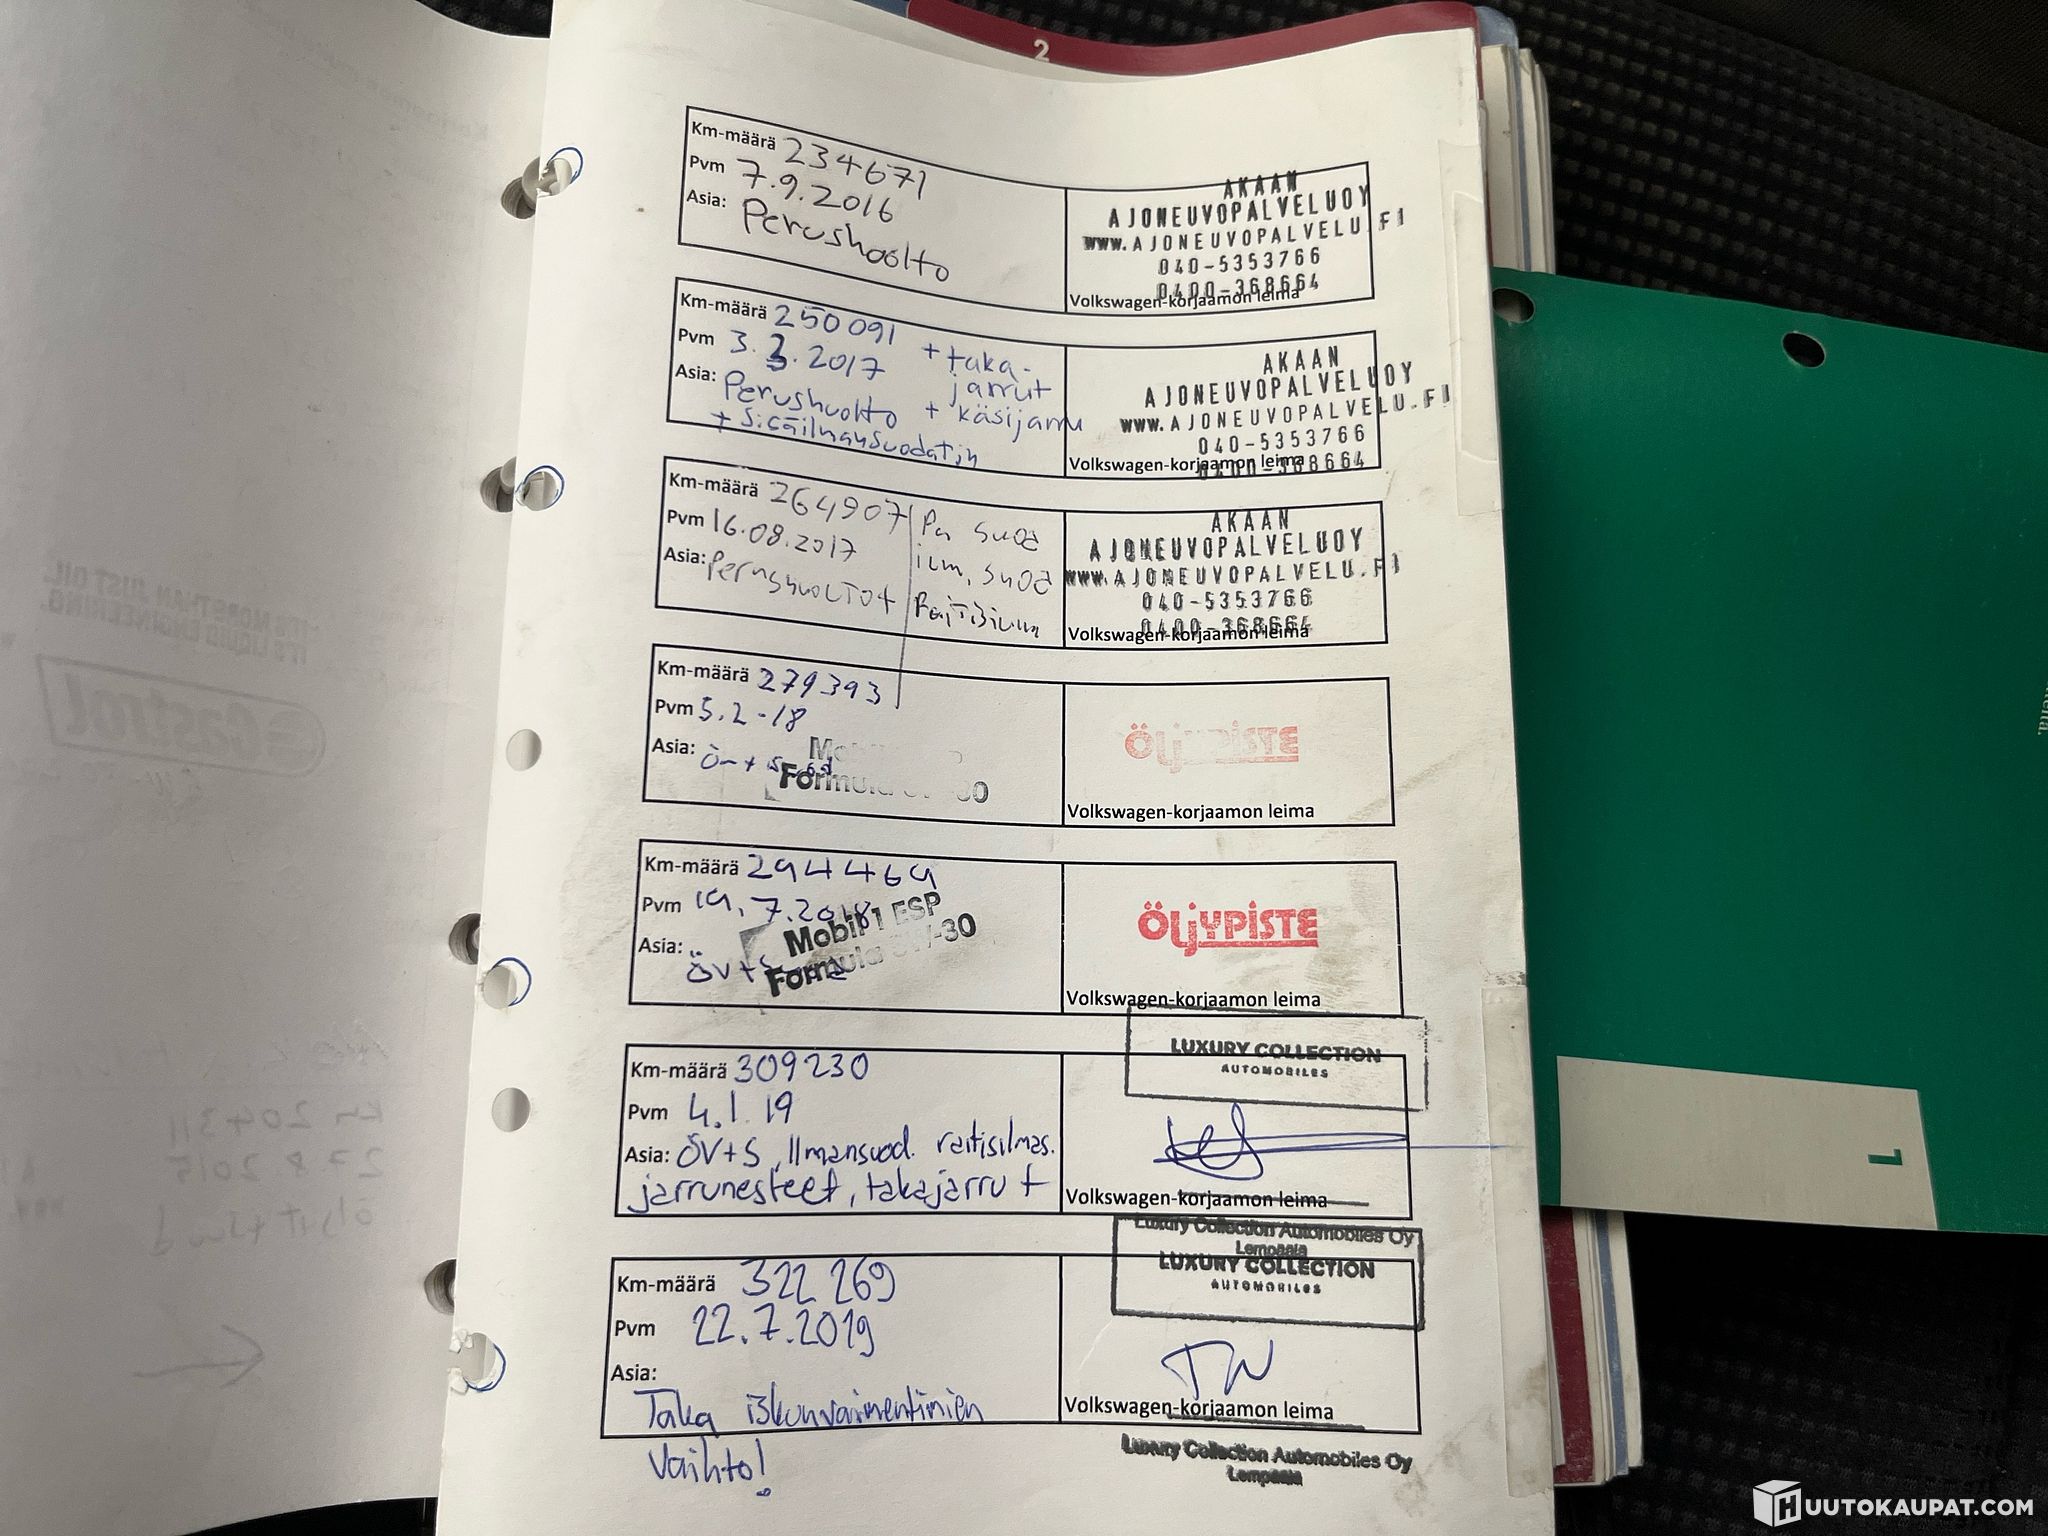 2
Km-määrä 234671
Pvm 7.9.2016
Asia: Perushuolto
AKAAN
AJONEUVOPALVELUOY
www.AJONEUVOPALVELU.FI
040-5353766
0400-368664
Volkswagen-korjaamon leima
Km-määrä 250091
Pvm 3.3.2017
+ taka-
jarrut
Asia: Perushuolto + käsijarru
+ sisäilmansuodatin
AKAAN
AJONEUVOPALVELUOY
www.AJONEUVOPALVELU.FI
040-5353766
0400-368664
Volkswagen-korjaamon leima
Km-määrä 264907
Pvm 16.08.2017
Asia: Perushuolto+
Pa suod
ilm, suod
Raitisilma
AKAAN
AJONEUVOPALVELUOY
www.AJONEUVOPALVELU.FI
040-5353766
0400-368664
Volkswagen-korjaamon leima
Km-määrä 279393
Pvm 5.2-18
Asia:
Formula
ÖLJYPISTE
Volkswagen-korjaamon leima
Km-määrä 294469
Pvm 19.7.2018
Mobil 1 ESP
Asia: ÖV+
Formula 5W-30
ÖLJYPISTE
Volkswagen-korjaamon leima
LUXURY COLLECTION
AUTOMOBILES
Km-määrä 309230
Pvm 4.1.19
Asia: ÖV+S, Ilmansuod. raitisilmas.
jarrunesteet, takajarrut
Volkswagen-korjaamon leima
Luxury Collection Automobiles Oy
Lempäälä
LUXURY COLLECTION
AUTOMOBILES
Km-määrä 322 269
Pvm 22.7.2019
Asia:
Taka iskunvaimentimien
vaihto!
TW
Volkswagen-korjaamon leima
Luxury Collection Automobiles Oy
Lempäälä
IT'S MORE THAN JUST OIL.
IT'S LIQUID ENGINEERING.
Castrol
km 204311
27.8.2015
öljyt + suod
1
HUUTOKAUPAT.COM